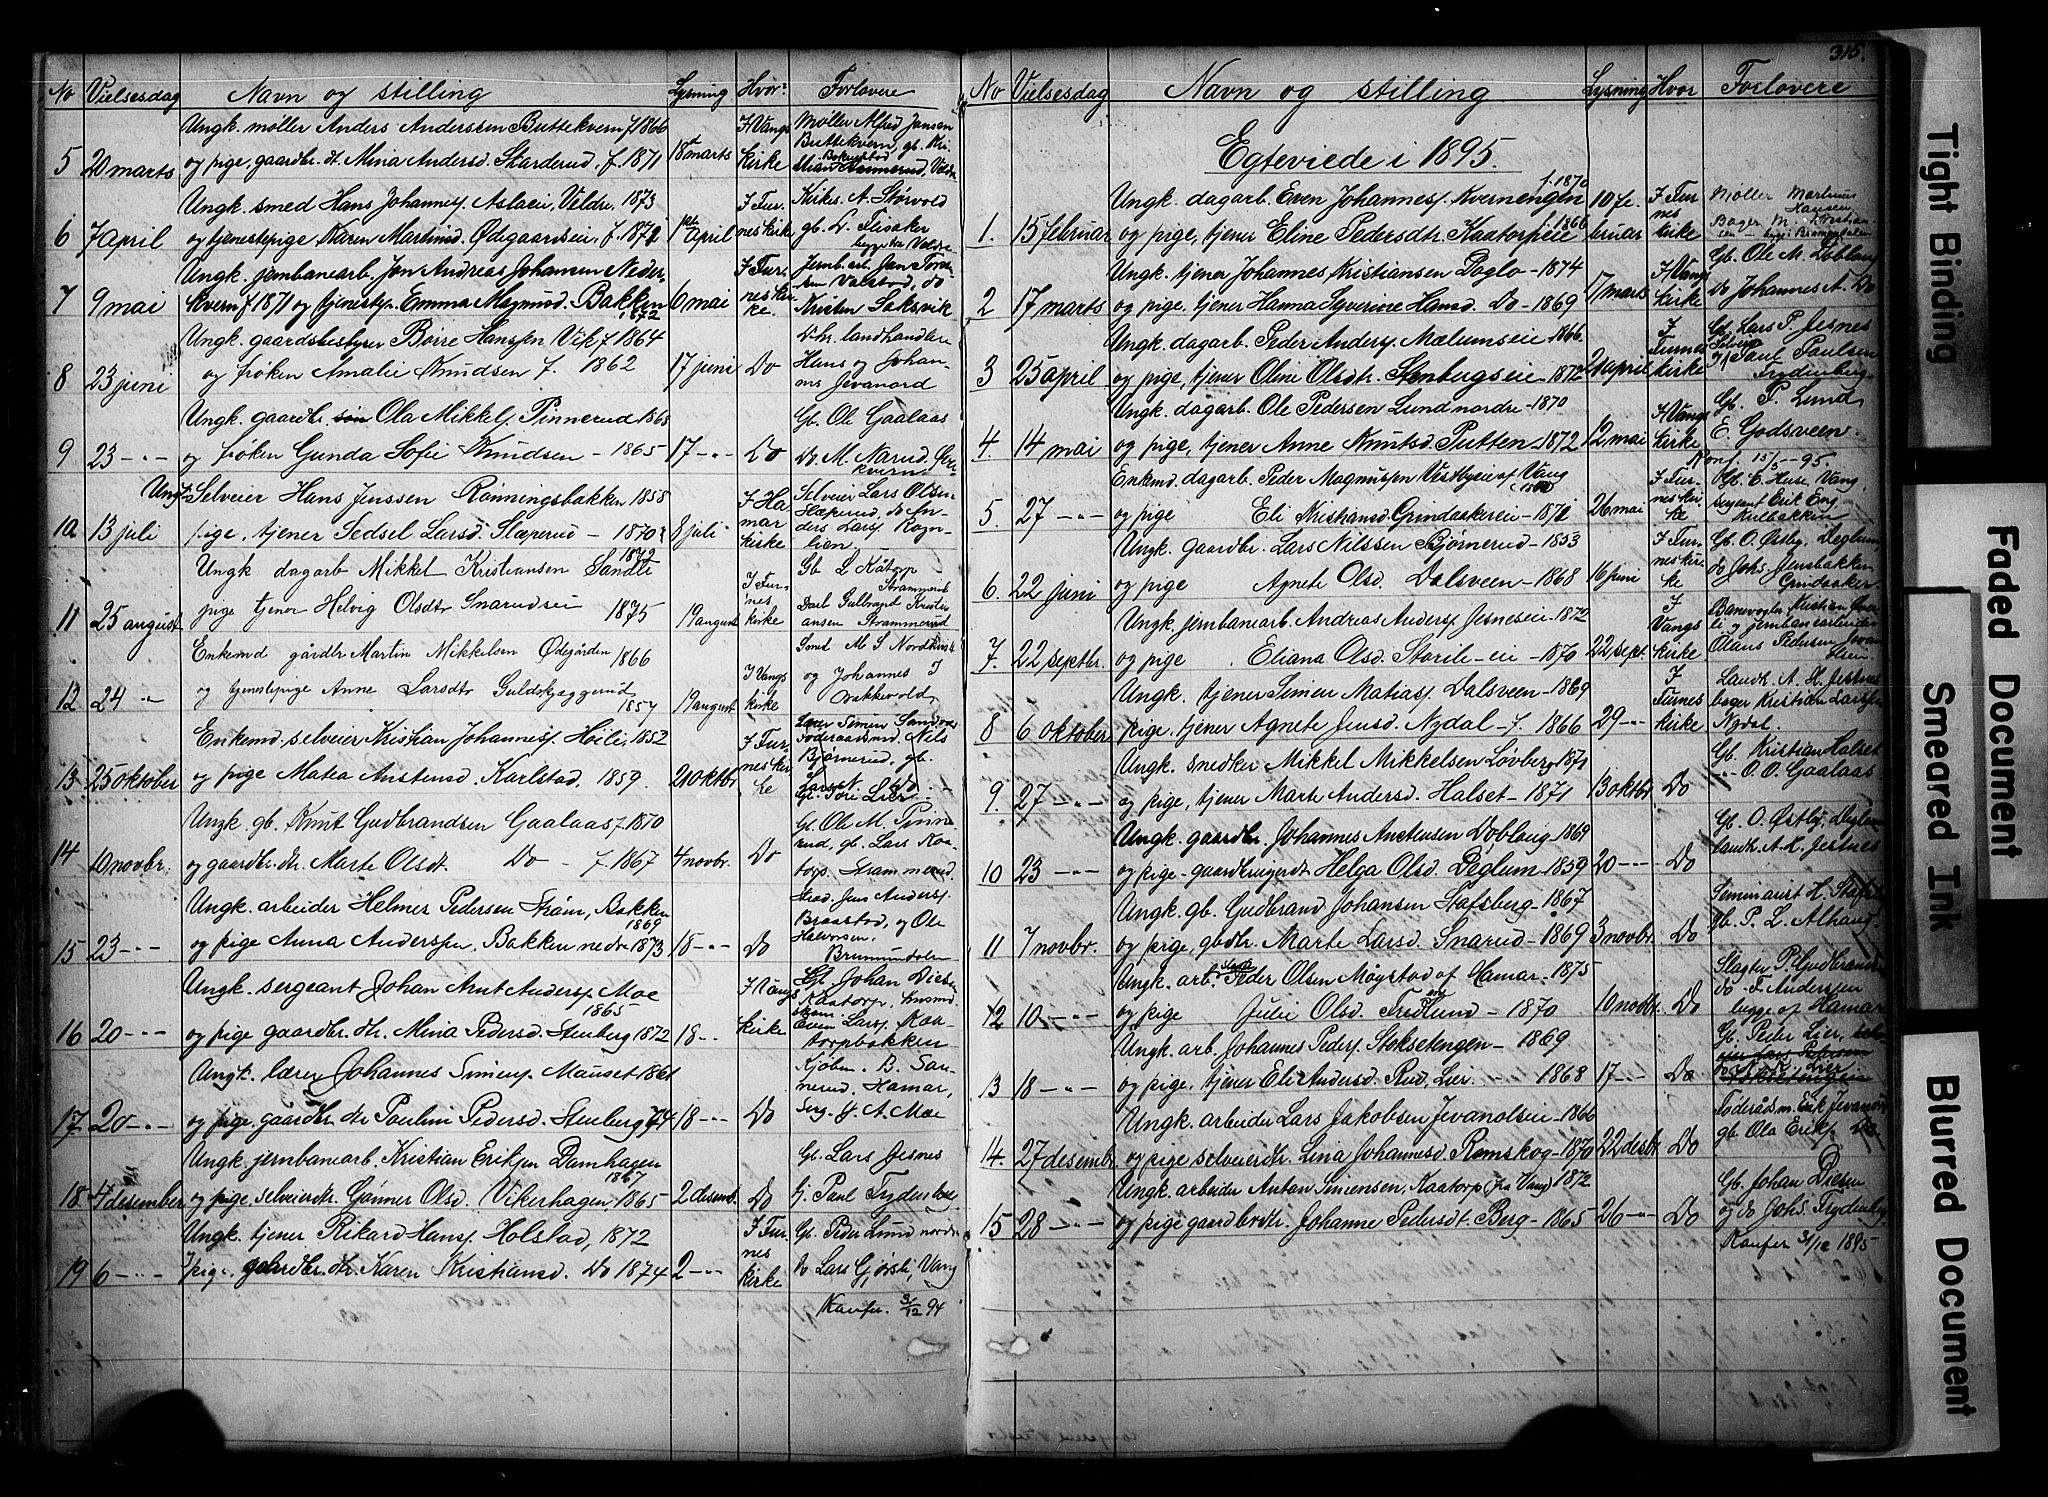 No Vielsesdag Navn og stilling Lysning Hvor Forlovere
Ungk. møller Anders Anderssen Buttekvern f. 1866
5 20 marts og pige, gaardbr. dt. Mina Andersd. Skarderud, f. 1871 18 marts I Vangs kirke
Møller Alfred Jansen
Buttekvern, gb. Kri-
Ungk. smed Hans Johannes. Aslaei, Veldre, 1873
6 7 april og tjenestepige Karen Martinsd. Ødegaardseie, f. 1april I Furnes kirke
Kirkes. A. Størvold
gb. L. Flisaker
Ungk. jernbanearb. Jon Andreas Johansen Neder-
7 9 mai kvern f 1871 og tjenestep. Emma Magnusd. Bakken 1872 6 mai I Furnes kirke
Kristen Saksvik
Ungk. gaardsbestyrer Børre Hanssen Vik f 1864
8 23 juni og frøken Amalie Knudsen f. 1862 17 juni Do
Dhr. landhandlere
Hans og Johan-
nes Jevanord
Ungk. gaardbr. søn Ola Mikkels. Pinnerud 1868
9 23 -"- og frøken Gunda Sofie Knudsen - 1865 17 -"- Do
Gb. Ole Gaalaas
Do. M. Narud
Ungk. Selveier Hans Jenssen Rønningsbakken 1858
10 13 juli pige, tjener Sedsel Larsd. Slæperud - 1870 8 juli I Hamar kirke
Selveier Lars Olsen
Slæperud, do An-
ders Lars. Rogn-
lien.
Ungk dagarb Mikkel Kristiansen Sandli 1872
11 25 august pige tjener Helvig Olsdtr Snarudsei 1875 19 august I Furnes kirke
Gb L Kåtorp
Strammerud
Gulbrand Kristi-
ansen Strammerud
Enkemd gårdbr Martin Mikkelsen Ødegården 1866
12 24 " og tjenestepige Anne Larsdtr Guldskjæggerud 1857 19 august I Vangs kirke
Smed M S Nordkvern
og Johannes J
Enkemd. selveier Kristian Johannes. Høili, 1852
13 25 oktober og pige Matea Anstensd. Karlstad, 1859. 21 oktbr I Furnes kirke
Nils
Bjørnerud, gb.
Ungk. gb. Knut Gudbrandsen Gaalaas f. 1870
14 10 novbr. og gaardbr. dtr. Marte Olsdt. Do - f. 1867 4 novbr. Do
Gb. Ole M. Pinne-
rud, gb. Lars Kaa-
torp. Strammerud.
Ungk. arbeider Helmer Pedersen Strøm, Bakken 1869
15 23 -"- og pige Anna Anderspn, Bakken nedre 1873 18 -"- Do
Jens Anders.
Braastad, og Ole
Halvorsen,
Brumunddalen
Ungk. sergeant Johan Knut Anders. Moe 1865
16 20 -"- og pige gaardbr. dtr. Mina Pedersd. Stenberg 1872 18 -"- I Vangs kirke
Gb. Johan Diesen
Kaatorp,
Even Lars. Kaa-
torpbakken
Ungk. lærer Johannes Simens. Mauset 1861
17 20 -"- og pige, gaardbr. dtr Pauline Pedersd. Stenberg 74 18 -"- Do
Kjøbm. B. San-
nerud, Hamar,
Serg. J. A. Moe
Ungk. jernbanearb. Kristian Eriksen Damhagen 1867
18 4 desember og pige, selveierdtr Gunner Olsd. Vikerhagen, 1865 2 desemb. Do
Gb. Lars Jesnes
Paul Frydenberg
Ungk. tjener Rikard Hans. Holstad, 1872
19 6 -"- pige, gaardbr. dtr. Karen Kristiansd. Do 1874 2 -"- I Furnes kirke
Gb. Peder Lund nordre
Do Lars Gjørsli, Vang
Konfer. 31/12 94
315.
No Vielsesdag Navn og stilling Lysning Hvor Forlovere
Egteviede i 1895.
Ungk. dagarb. Even Johannes. Kvernengen f. 1870
1. 15 februar og pige, tjener Eline Pedersdtr. Kaatorpeie f. 1866 10 februar I Furnes kirke
Møller Martinus
Hansen
Ungk. tjener Johannes Kristiansen Doglo - 1874
2 17 marts og pige, tjener Hanna Syverine Hansd. Do - 1869 17 marts I Vangs kirke
Gb. Ole M. Doblaug
Do Johannes A. Do
Ungk. dagarb. Peder Anders. Mælumseie - 1866
3 25 april og pige, tjener Oline Olsdtr. Stenbergseie - 1872 21 april I Furnes kirke
Gb. Lars P. Jesnes
Selveier Paul Paulsen
Frydenberg
Ungk. dagarb. Ole Pedersen Lund nordre - 1870
4. 14 mai og pige, tjener Anne Knutsd. Putten - 1872 12 mai I Vangs kirke
Gb. P. Lund
E. Godsveen.
Konf. 15/5 - 95
Enkemd dagarb. Peder Magnussen Vestbyeie af Vang
5. 27 -"- og pige Eli Kristiansd. Grindaakereie - 1871 26 mai I Furnes kirke
Gb. C. Huse, Vang,
sergeant Erik Eng
Ungk. gaardbr. Lars Nilssen Bjørnerud - 1853
6. 22 juni og pige Agnete Olsd. Dalsveen - 1868 16 juni I Furnes kirke
Gb. O. Østby, Deglum,
do Johs. Jensbakken
Grindaaker
Ungk. jernbanearb. Andreas Anders. Jesneseie - 1872
7. 22 septbr. og pige Eliana Olsd. Storihle - eie - 1870 22 sept. I Vangs kirke
Banevogter Kristian
Olaus Pedersen
Ungk. tjener Simen Matias. Dalsveen - 1869
8 6 oktober pige, tjener Agnete Jensd. Nydal - f. 1866 29 -"- I Furnes kirke
Landh. A. H. Jesnes
bager Kristian Larssen
Nydal.
Ungk. snedker Mikkel Mikkelsen Løvberg - 1871
9. 27 -"- og pige, tjener Marte Andersd. Halset - 1871 13 oktbr. Do
Gb. Kristian Halset
-"- O. O. Gaalaas
Ungk. gaardbr. Johannes Anstensen Doblaug - 1869
10 23 -"- og pige - gaardbrugerdt Helga Olsd. Deglum - 1859 20 -"- Do
Gb. O. Østby Deglum
landh. A. H. Jestnes
Ungk. gb. Gudbrand Johansen Stafsberg - 1867
11 7 novbr. og pige, gbdtr. Marte Larsd. Snarud - 1869 3 novbr. Do
Seminarist H. Stafsb.
gb. P. L. Alhaug
Ungk. arb. Peder Olsen Møystad af Hamar - 1875
12 10 -"- og pige Julie Olsd. Fredlund - 1870 10 novbr. Do
Slagter P. Gudbrands.
do. J. Anderssen
begge af Hamar
Ungk. arb. Johannes Peders. Stoksetengen - 1869
13 18 -"- og pige, tjener Eli Andersd. Rud, Lier. - 1868 17 -"- Do
Gb. Peder Lier,
Ungk. arbeider Lars Jakobsen Jevanolseie - 1866
14. 27 desembr og pige selveierdtr. Lina Johannesd. Romskog - 1870 22 desbr Do
Foderådsm. Erik Jevanord
gb. Ola Eriks. Do
Ungk. arbeider Anton Simensen, Kaatorp (fra Vang) 1872
15 28 -"- og pige gaardbrdtr. Johanne Pedersdt. Berg - 1865 26 -"- Do
Gb. Johan Diesen
og do Johs. Frydenberg
Konfer 31/12 1895
Tight Binding
Faded Document
Smeared Ink
Blurred Document